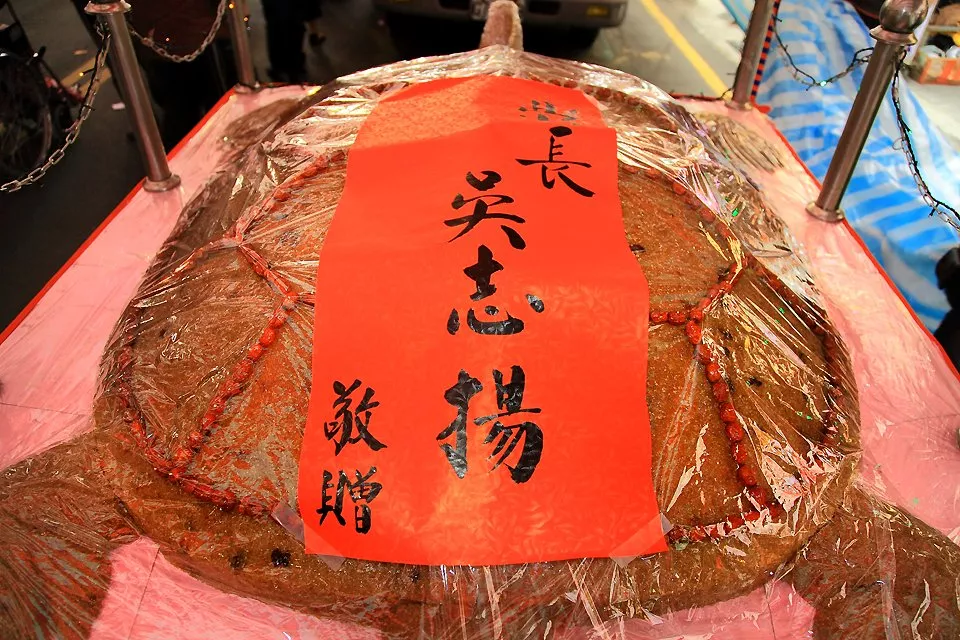 長
吳志揚
敬贈